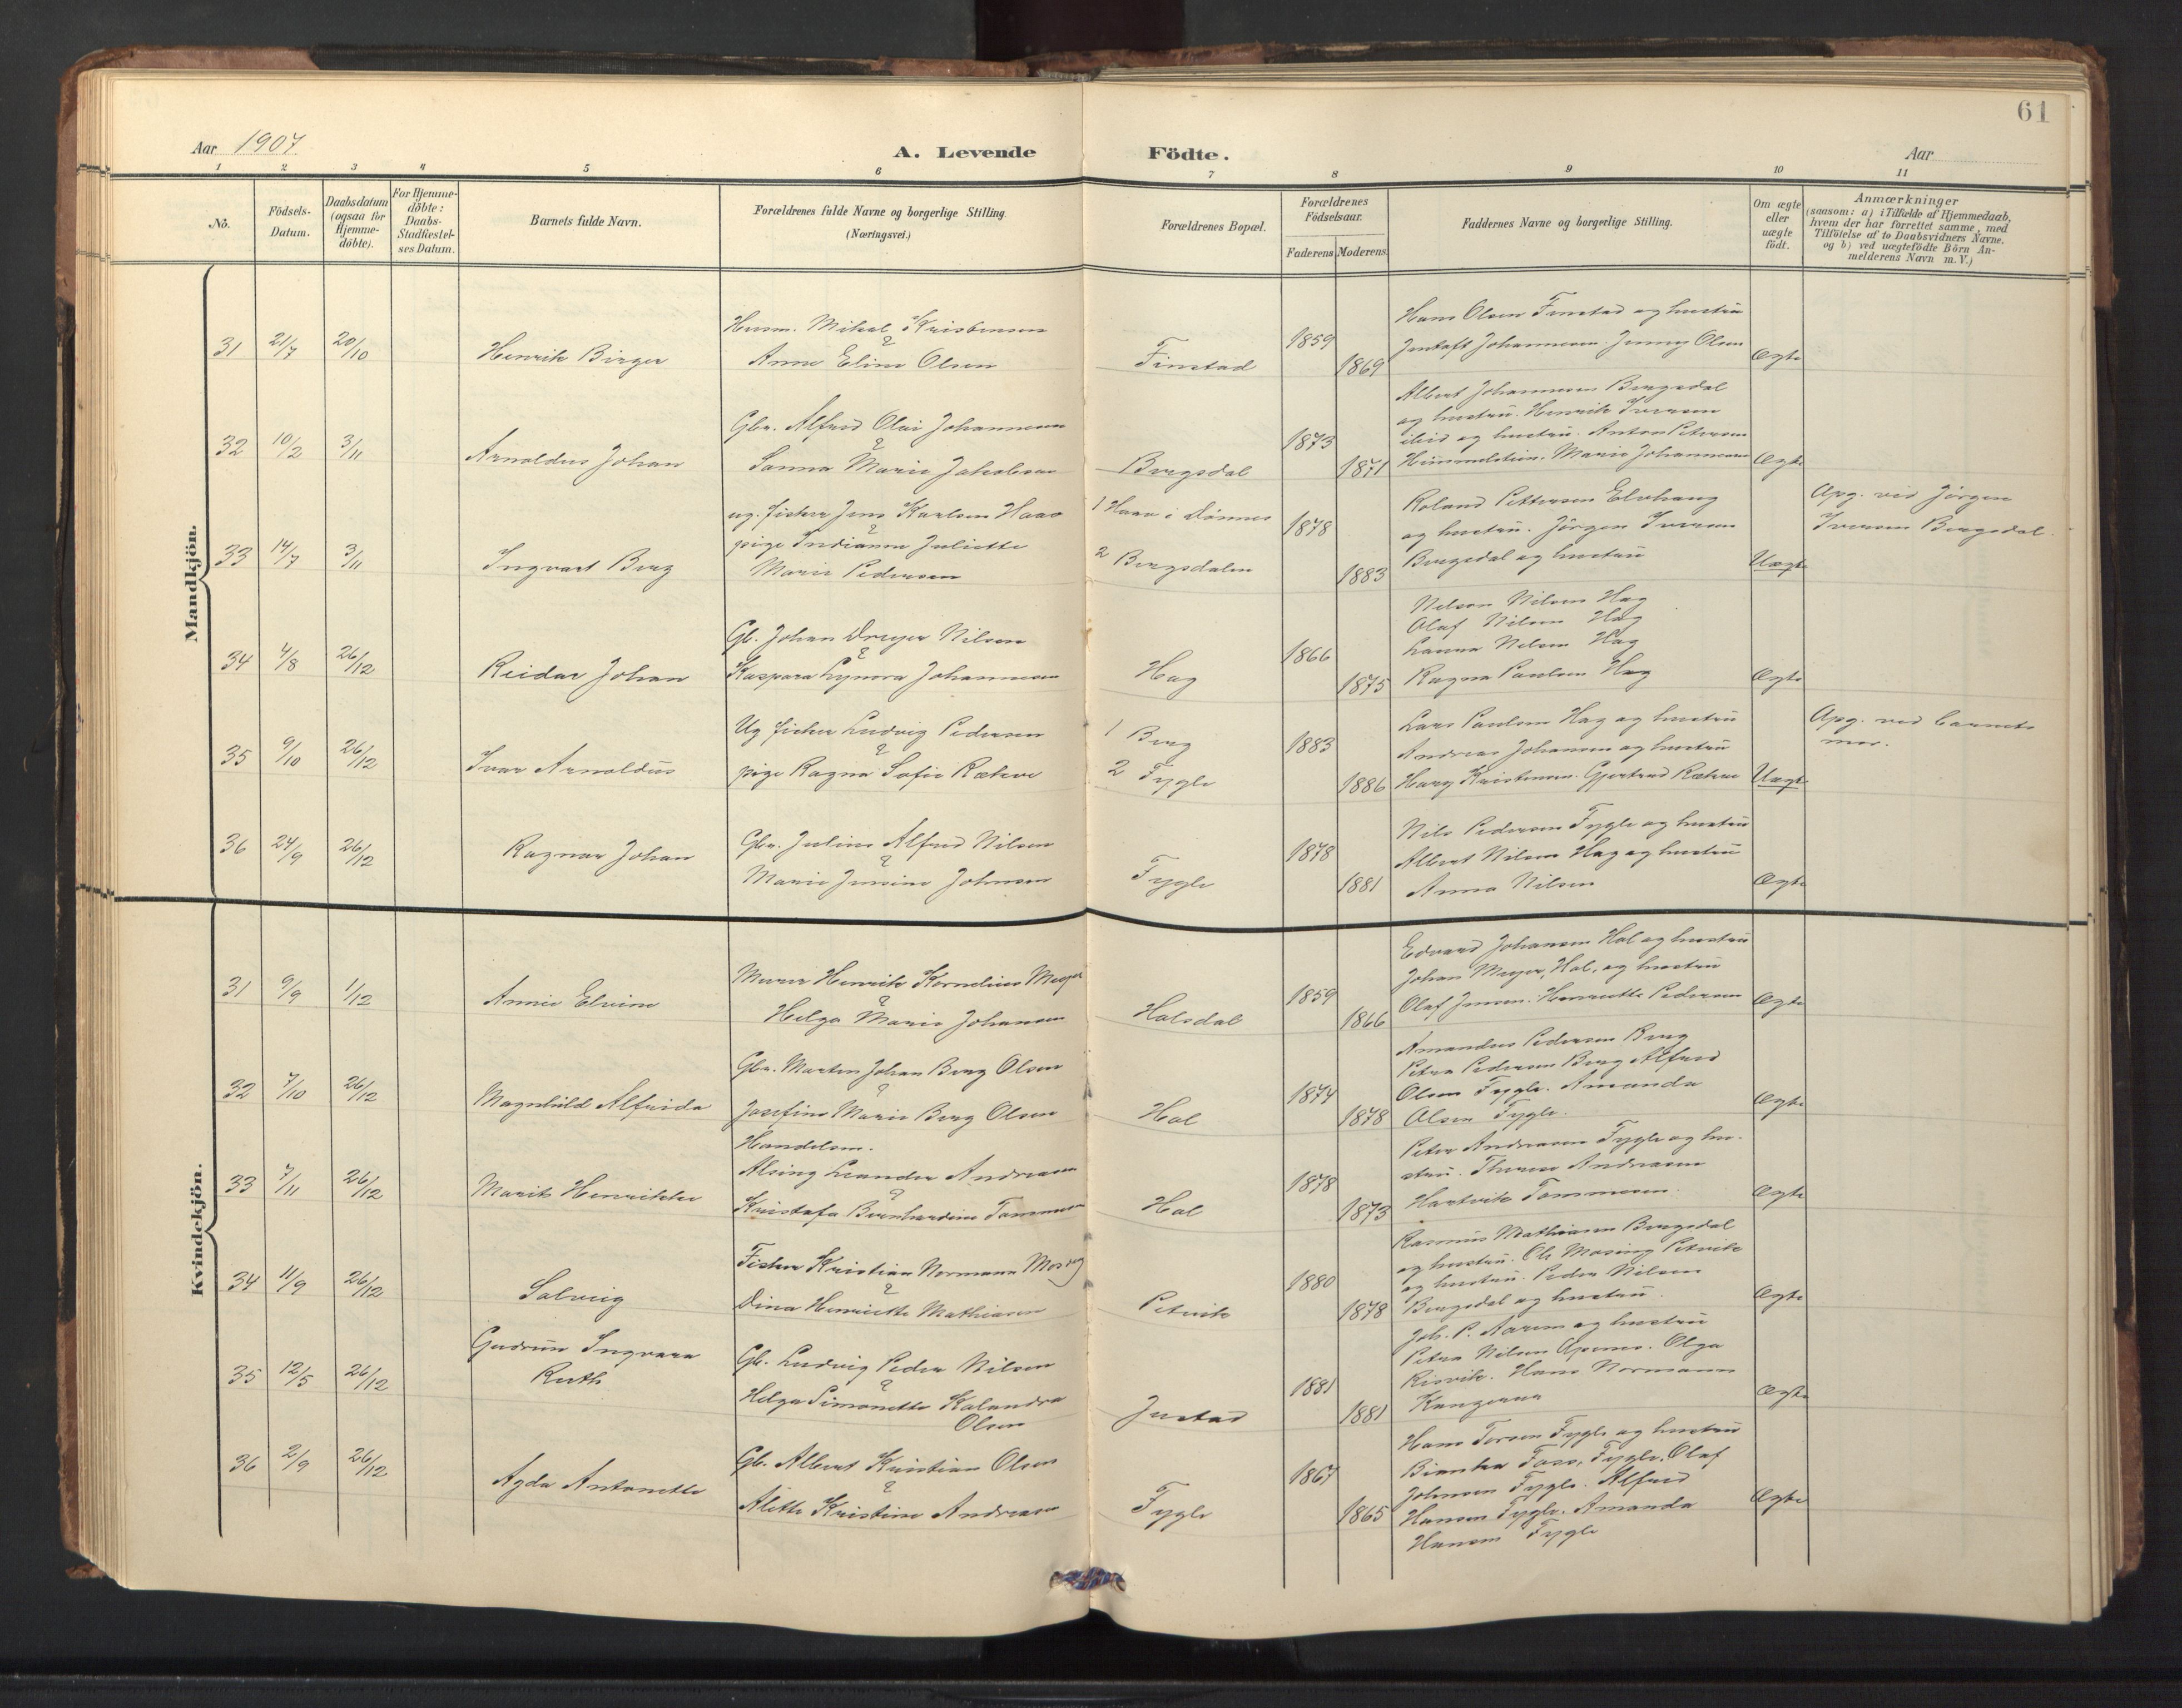 61
Aar 1907
A. Levende Födte.
Aar
1 2 3 4 5 6 7 8 9 10 11
No.
Födsels-Datum.
Daabsdatum (ogsaa for Hjemme-döbte).
For Hjemme-döbte: Daabs-Stadfæstel-ses Datum.
Barnets fulde Navn.
Forældrenes fulde Navne og borgerlige Stilling.
(Næringsvei.)
Forældrenes Bopæl.
Forældrenes Födselsaar.
Faderens Moderens
Faddernes Navne og borgerlige Stilling.
Om ægte eller uægte født.
Anmærkninger
(saasom: a) i Tilfælde af Hjemmedaab,
hvem der har forrettet samme, med
Tilföielse af to Daabsvidners Navne.
og b) ved uægtefödte Börn An-
melderens Navn m.V.)
Mandkjön.
31 21/7 20/10 Henrik Birger
Husm. Mikal Kristensen
&
Anne Eline Olsen
Finstad 1859 1869
Hans Olsen Finstad og hustru
Johannesen. Jenny Olsen
Ægte
32 10/2 3/11 Arnoldus Johan
Gbr. Alfred Olai Johannesen
&
Sanna Marie Jakobsen
Bergsdal 1873 1871
Albert Johannesen Bergsdal
og hustru. Henrik Iversen
ibid og hustru. Anton Petersen
Himmelstein. Marie Johannesen
Ægte
33 14/7 3/11 Ingvart Berg
ug. fisker Jens Karlsen Haav
&
pige Indianna Juliette
Marie Pedersen
1 Haav i Dønnes
2 Bergsdalen
1878 1883
Roland Pettersen Elvhaug
og hustru. Jørgen Iversen
Bergsdal og hustru
Uægte
Opg. ved Jørgen
Iversen Bergsdal.
34 4/8 26/12 Reidar Johan
Gb. Johan Dreyer Nilsen
&
Kaspara Lynora Johannesen
Hag 1866 1875
Nelson Nilsen Hag
Olaf Nilsen Hag
Lanna Nilsen Hag
Ragna Paulsen Hag
Ægte
35 9/10 26/12 Ivar Arnoldus
Ug fisker Ludvig Pedersen
&
pige Ragna Sofie Rækve
1 Berg
2 Fygle
1883 1886
Lars Paulsen Hag og hustru
Andreas Johansen og hustru
Harg Kristensen. Gjertrud Rækve
Uægte
Opg. ved barnets
mor.
36 24/9 26/12 Ragnar Johan
Gbr. Julius Alfred Nilsen
&
Marie Jensine Johnsen
Fygle 1878 1881
Nils Pedersen Fygle og hustru
Albert Nilsen Hag og hustru
Anna Nilsen
Ægte
Kvindekjön.
31 9/9 1/12 Annie Elvine
Murer Henrik Kornelius Meyer
&
Helga Marie Johansen
Halsdal 1859 1866
Edvard Johansen Hal og hustru
Johan Meyer, Hal, og hustru
Olaf Jensen. Henriette Pedersen
Ægte
32 7/10 26/12 Magnhild Alfrida
Gbr. Martin Johan Berg Olsen
&
Josefine Marie Berg Olsen
Hol 1874 1878
Amandus Pedersen Berg
Petra Pedersen Berg Alfred
Olsen Fygle. Amanda
Olsen Fygle.
Ægte
33 7/11 26/12 Marit Henrikke
Handelsm.
Alsing Leander Andreasen
&
Kristofa Bernhardine Tommesen
Hol 1878 1873
Peter Andreasen Fygle og hu-
stru. Therese Andreasen
Hartvik Tommesen.
Ægte
34 11/9 26/12 Solveig
Fisker Kristian Normann Mosing
&
Dina Henriette Mathiasen
Petvik 1880 1878
Rasmus Mathiasen Bergsdal
og hustru. Ole Mosing Petvik
og hustru. Peder Nilsen
Bergsdal og hustru.
Ægte
35 12/5 26/12 Gudrun Ingvara
Ruth
Gb. Ludvig Peder Nilsen
&
Helga Simonette Kolandra
Olsen
Justad 1881 1881
Joh. P. Aarsen og hustru
Petra Nilsen Opsnes. Olga
Risvik. Hans Normann
Ægte
36 2/9 26/12 Agda Antonette
Gb. Albert Kristian Olsen
&
Alette Kristine Andreasen
Fygle 1867 1865
Hans Torsen Fygle og hustru
Bianka Foss, Fygle. Olaf
Johnsen Fygle. Alfred
Hansen Fygle. Amanda
Hansen Fygle
Ægte